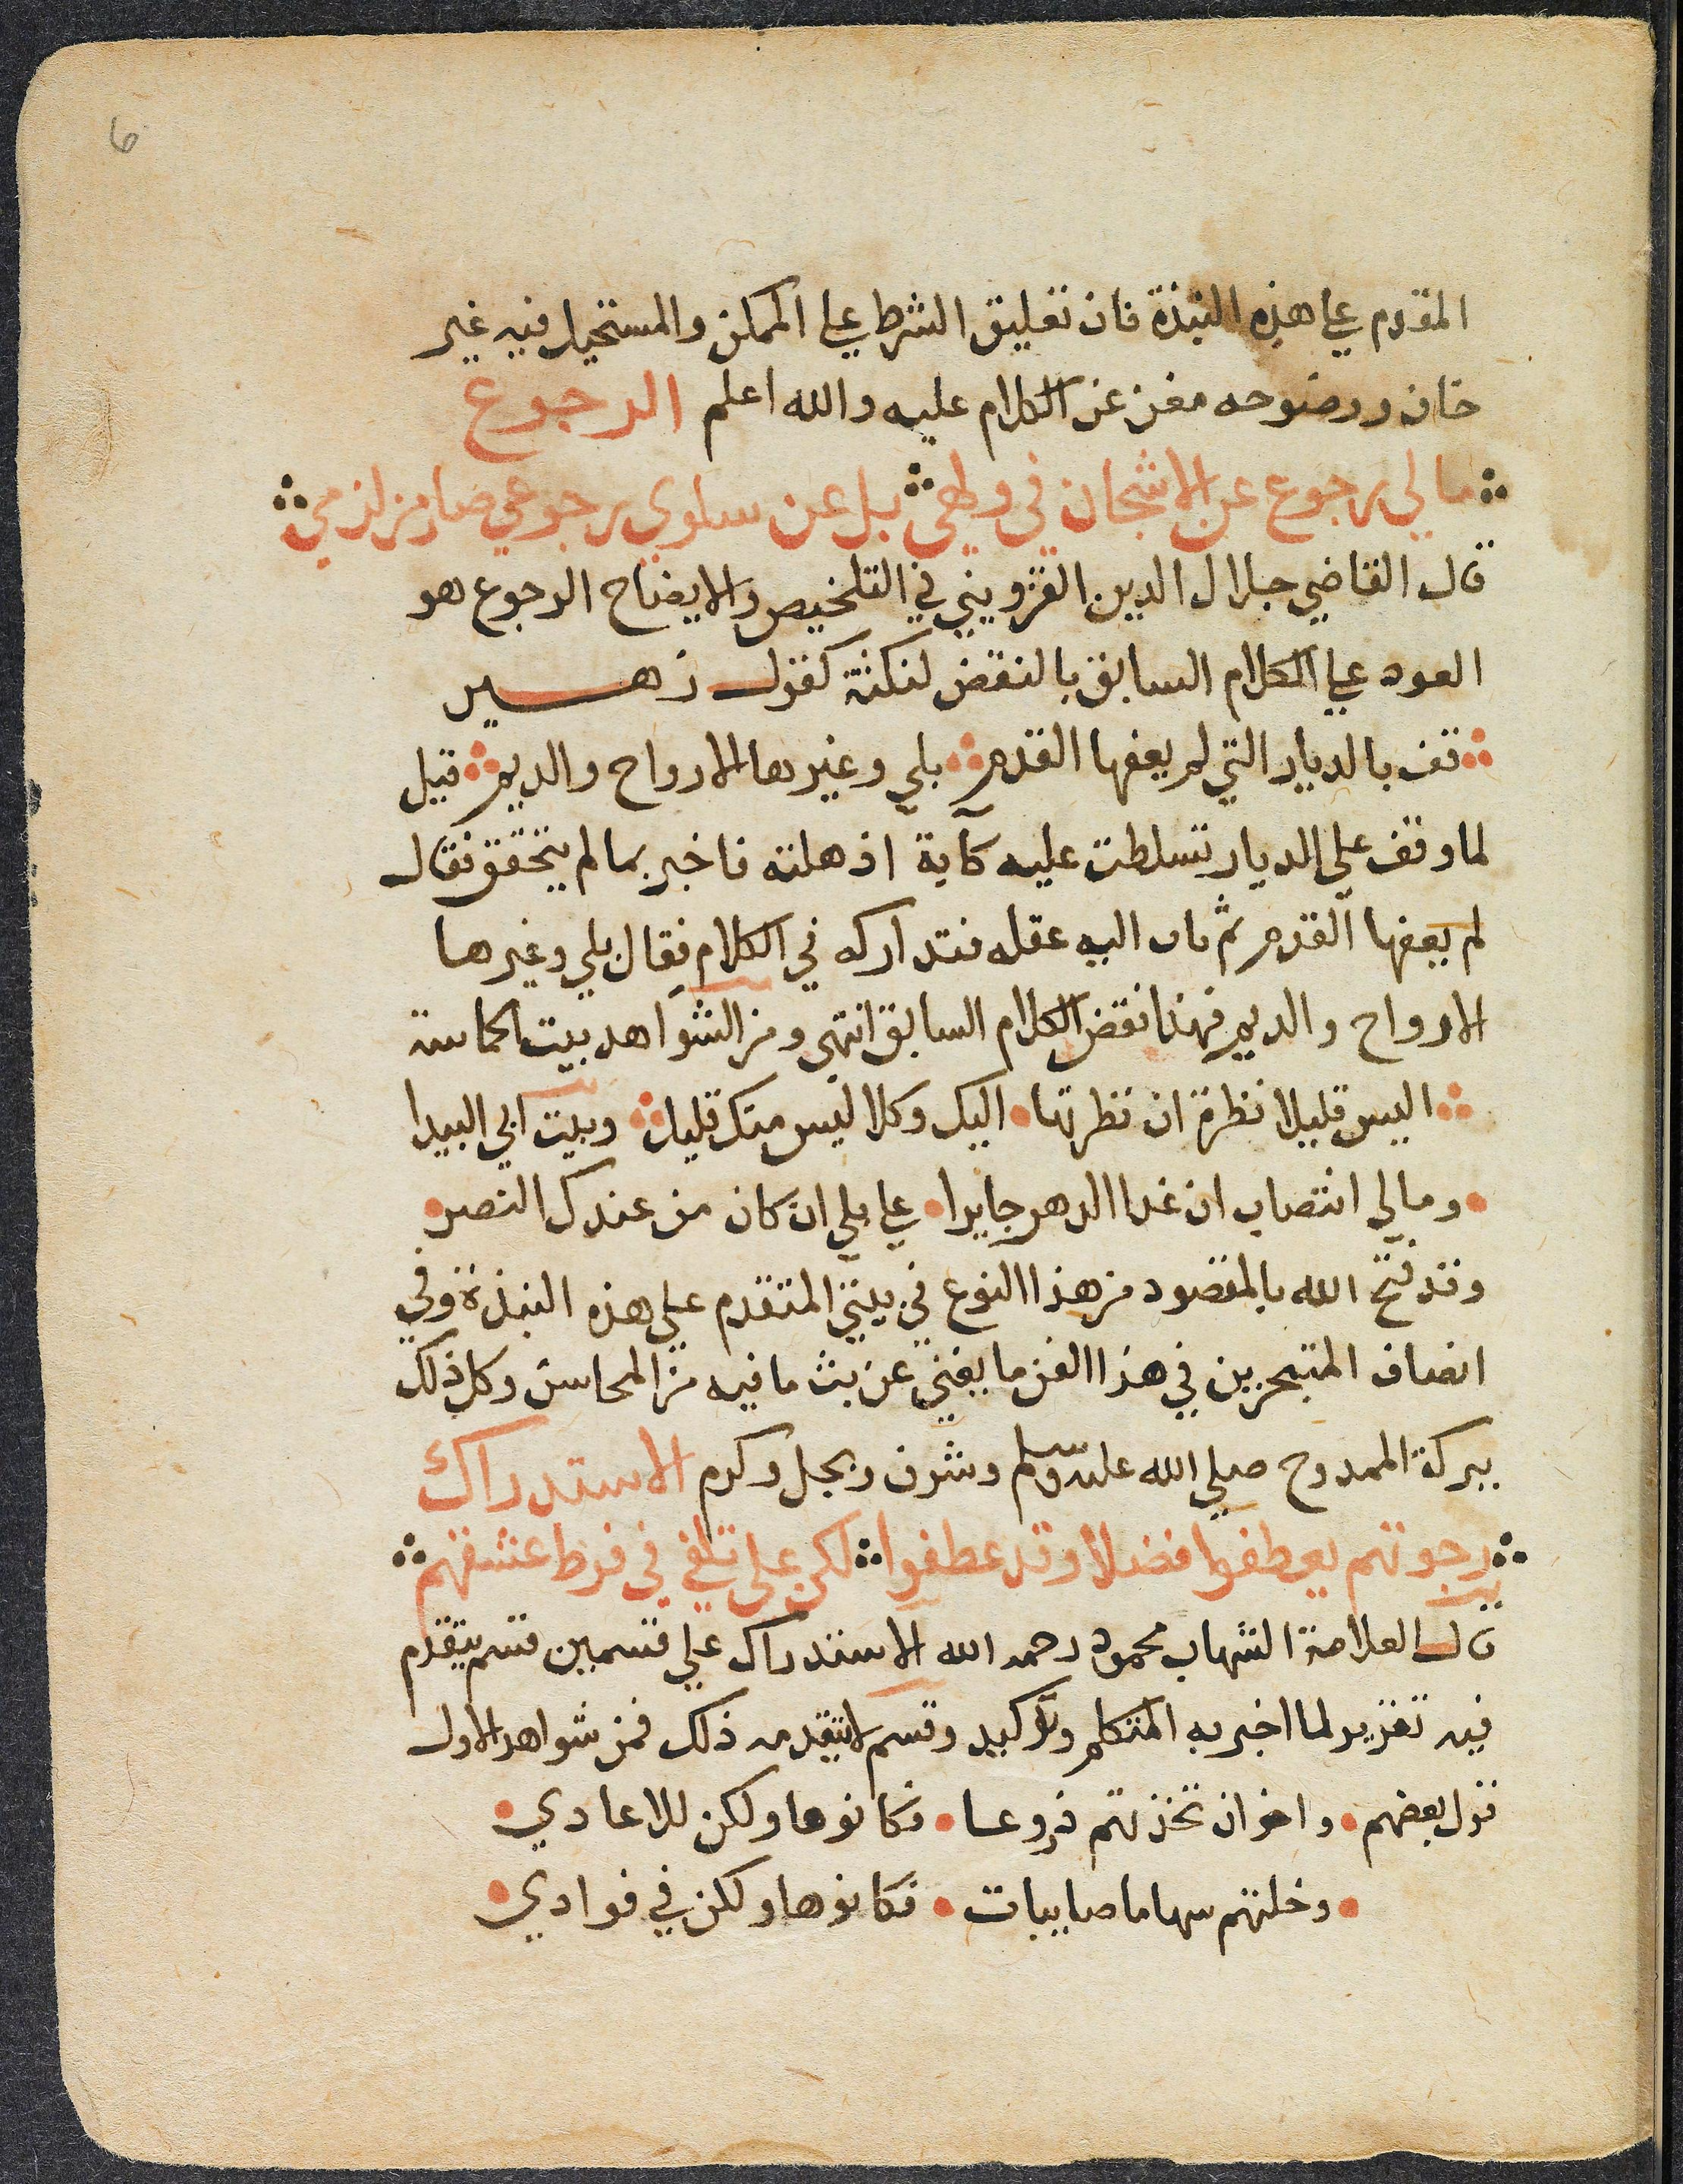 6
المقدم على هذه النبذة فان تعليق الشرط على الممكن والمستحيل فيه غير
خاف ووضوحه مغن عن الكلام عليه والله اعلم الرجوع
مالي رجوع عن الاشجان في ولهي بل عن سلوي رجوعي صار من لزمي
قال القاضي جلال الدين القزويني في التلخيص والايضاح الرجوع هو
العود على الكلام السابق بالنقض لنكتة كقول زهير
قف بالديار التي لم يعفها القدم بلى وغيرها الارواح والديم قيل
لما وقف على الديار تسلطت عليه كآبة اذهلته فاخبر بما لم يتحقق فقال
لم يعفها القدم ثم ثاب اليه عقله فتداركه في الكلام فقال بلي وغيرها
الارواح والديم فهذا نقض الكلام السابق انتهى ومن الشواهد بيت الحماسة
اليس قليلا نظرة ان نظرتها اليك وكلا ليس منك قليل وبيت ابي البيدا
ومالي انتصاب ان غدا الدهر جايرا علي بلي ان كان من عندك النصر
وقد فتح الله بالمقصود من هذا النوع في بيتي المتقدم على هذه النبذة وفي
انصاف المتبحرين في هذا الفن ما يغني عن بث ما فيه من المحاسن وكل ذلك
ببركة الممدوح صلي الله عليه وسلم وشرف وبجل وكرم الاستدراك
رجوتهم يعطفوا فضلا وقد عطفوا لكن على تلفي في فرط عشقهم
قال العلامة الشهاب محمود رحمه الله الاستدراك علي قسمين قسم يتقدم
فيه تقرير لما اخبر به المتكلم وتوكيد وقسم لا يتقدمه ذلك فمن شواهد الاول
قول بعضهم واخوان تخذتهم دروعا فكانوها ولكن للاعادي
وخلتهم سهاما صايبات فكانوها ولكن في فوادي